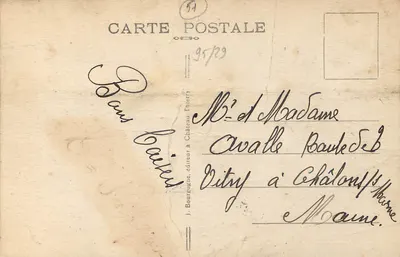 51
CARTE POSTALE
95/29
Bons baisers
J. Bourgogne, éditeur à Châlons-s-Marne
Mr et Madame
Avalle Route de
Vitry à Châlons s/ Marne
Marne.